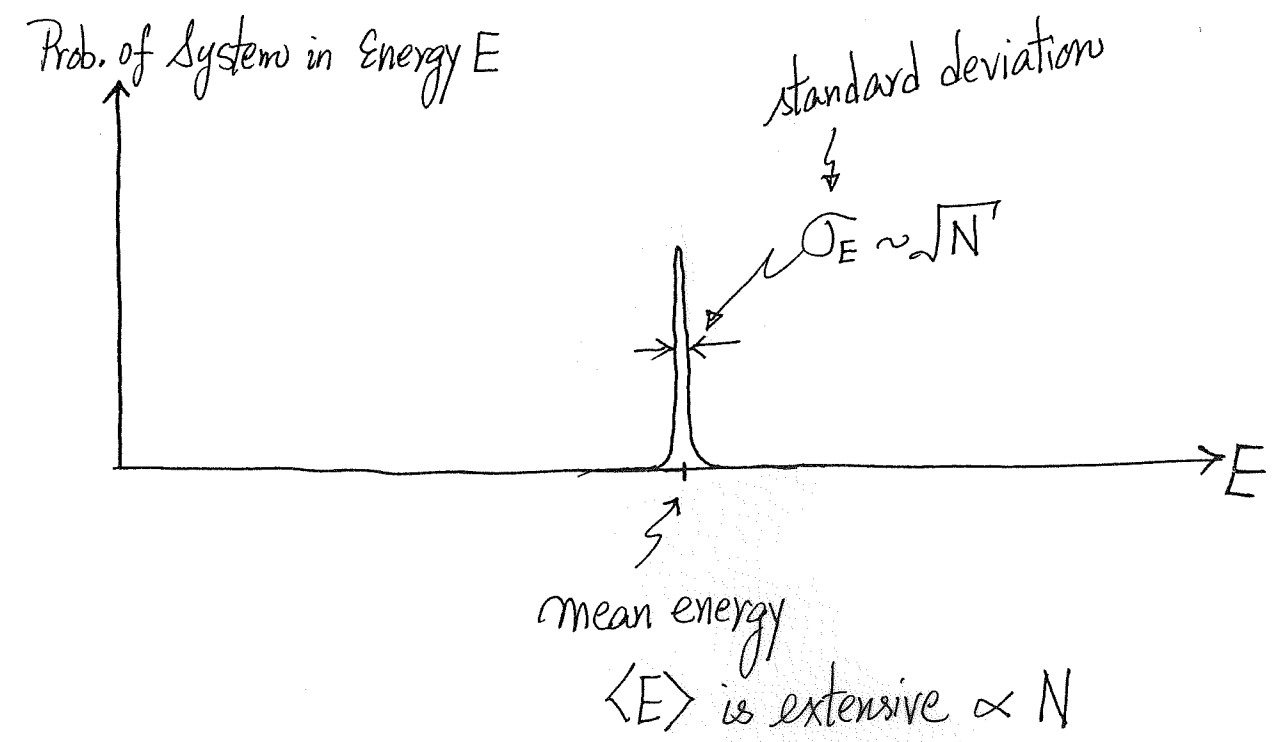 Prob. of System in Energy E
standard deviation
σ_E ~ √N
E
mean energy
⟨E⟩ is extensive ∝ N